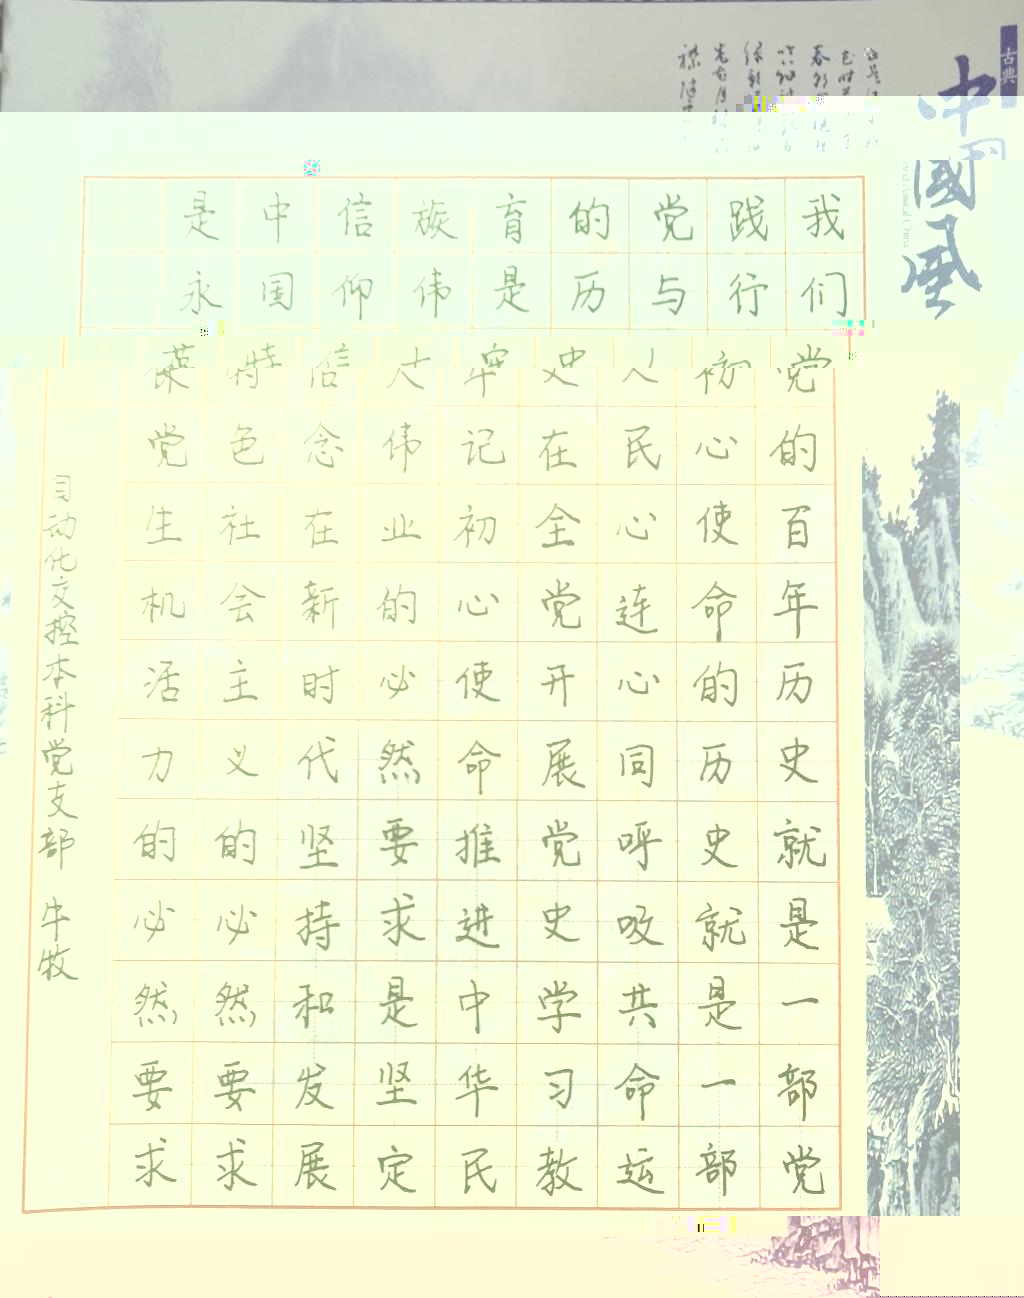 古典
中國風
我们党的百年历史就是一部党
践行初心使命的历史就是一部
党与人民心连心同呼吸共命运
的历史在全党开展党史学习教
育是牢记初心使命推进中华民
族伟大伟业的必然要求是坚定
信仰信念在新时代坚持和发展
中国特色社会主义的必然要求
是永葆党生机活力的必然要求
自动化交控本科党支部 牛牧